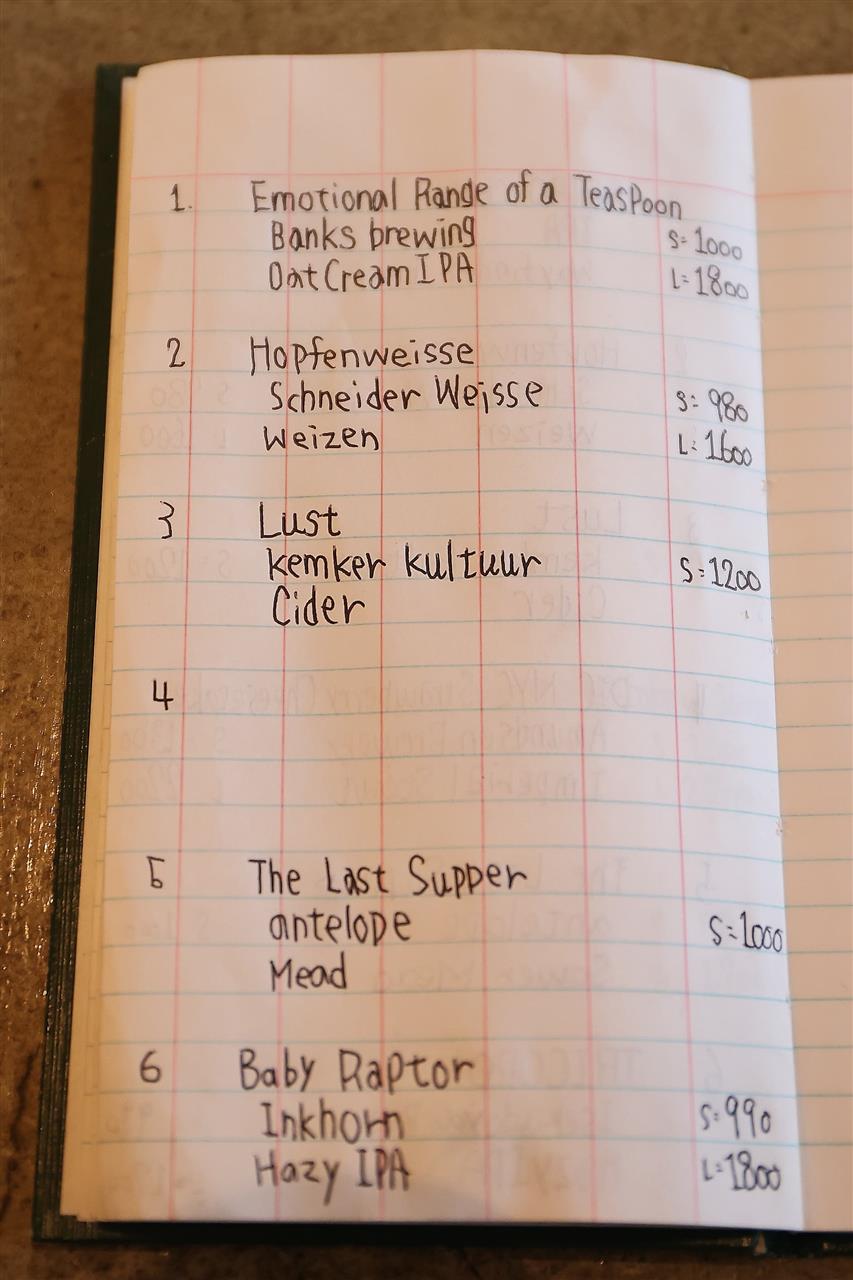 1. Emotional Range of a Teaspoon
Banks brewing S=1000
Oat Cream IPA L=1800
2 Hopfenweisse
Schneider Weisse S=980
Weizen L=1600
3 Lust
kemker kultuur S=1200
Cider
4
5 The Last Supper
antelope S=1000
Mead
6 Baby Raptor
Inkhorn S=990
Hazy IPA L=1800